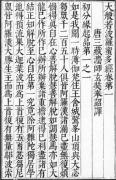 大般若波羅蜜多經卷第一
三藏法師玄奘奉 詔譯
初分緣起品第一之一
如是我聞一時薄伽梵住王舍城鷲峯山頂與大
苾芻眾千二百五十人俱皆阿羅漢諸漏已盡無復煩
惱得真自在心善解脫慧善解脫如調慧馬亦如大
龍已作所作已辦所辦棄諸重擔逮得己利盡諸有
結正知解脫至心自在第一究竟除阿難陀獨居學
地得預流果大迦葉波而為上首復有五百苾芻尼
眾皆阿羅漢大勝生主而為上首復有無量鄔波索